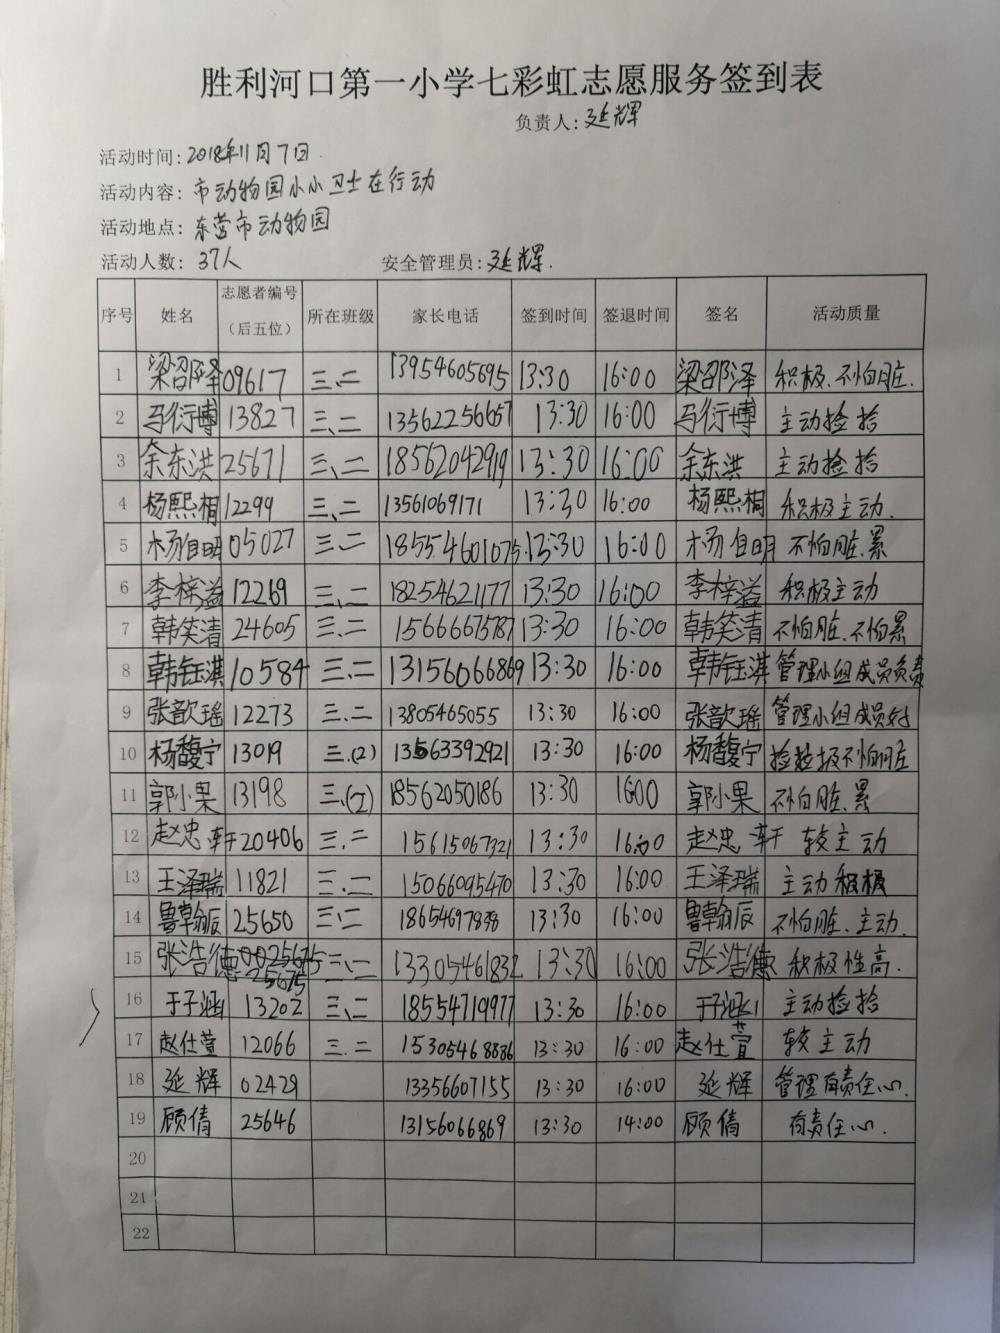 胜利河口第一小学七彩虹志愿服务签到表
负责人:延辉
活动时间:2018年11月7日.
活动内容:市动物园小小卫士在行动
活动地点:东营市动物园
活动人数:37人 安全管理员:延辉.
序号 姓名 志愿者编号(后五位) 所在班级 家长电话 签到时间 签退时间 签名 活动质量
1 梁邵泽 09617 三、二 13954605695 13:30 16:00 梁邵泽 积极、不怕脏.
2 马衍博 13827 三、二 13562256657 13:30 16:00 马衍博 主动捡拾
3 余东洪 25671 三、二 18562042919 13:30 16:00 余东洪 主动捡拾
4 杨熙桐 12299 三、二 13561069171 13:30 16:00 杨熙桐 积极主动.
5 杨自明 05027 三.二 18554601075 13:30 16:00 杨自明 不怕脏.累
6 李梓溢 12269 三、二 18254621177 13:30 16:00 李梓溢 积极主动
7 韩笑清 24605 三、二 15666675787 13:30 16:00 韩笑清 不怕脏、不怕累
8 韩钰淇 10584 三、二 13156066869 13:30 16:00 韩钰淇 管理小组成员负责
9 张歆瑶 12273 三、二 13805465055 13:30 16:00 张歆瑶 管理小组成员
10 杨馥宁 13019 三.(2) 13563392921 13:30 16:00 杨馥宁 不怕脏
11 郭小果 13198 三、(2) 18562050186 13:30 16:00 郭小果 不怕脏、累
12 赵忠轩 20406 三、二 15615067321 13:30 16:00 赵忠轩 较主动
13 王泽瑞 11821 三、二 15066095470 13:30 16:00 王泽瑞 主动积极
14 鲁翰辰 25650 三、二 18654697838 13:30 16:00 鲁翰辰 不怕脏、主动.
15 张浩德 0025675 25675 三、二 13305461832 13:30 16:00 张浩德 积极性高.
16 于子涵 13202 三、二 18554719977 13:30 16:00 于子涵 主动捡拾
17 赵仕萱 12066 三.二 15305468836 13:30 16:00 赵仕萱 较主动
18 延辉 02429 13356607155 13:30 16:00 延辉 管理有责任心.
19 顾倩 25646 13156066869 13:30 14:00 顾倩 有责任心.
20
21
22